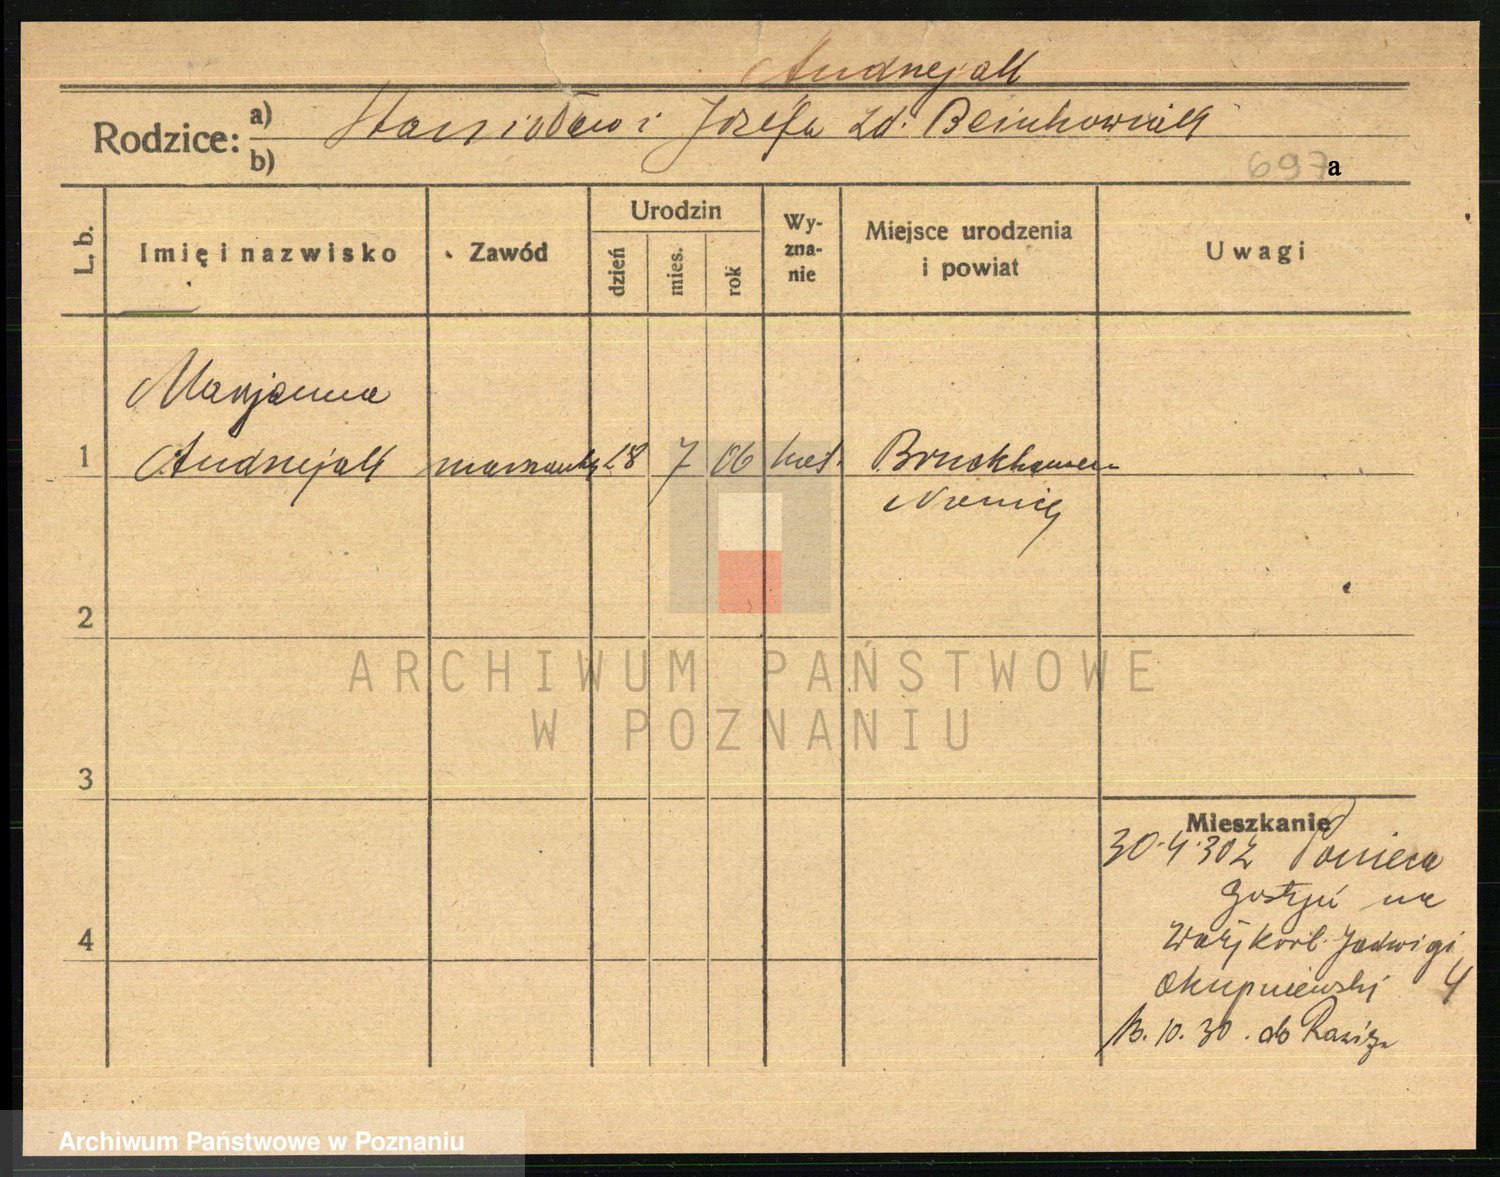 Andrzejak
Rodzice:
a) Stanisław i Józefa zd. Beinkowniak
b)
697a
L. b.
Imię i nazwisko
Zawód
Urodzin
dzień
mies.
rok
Wy-
zna-
nie
Miejsce urodzenia
i powiat
Uwagi
Marjanna
1 Andrzejak 28 7 06 kat. Bruckhausen
Niemcy
2
3
4
Mieszkanie
30.4.30 z Ponieca
Gostyń na
Jadwigi
4
10.30. do
ARCHIWUM PAŃSTWOWE
W POZNANIU
Archiwum Państwowe w Poznaniu